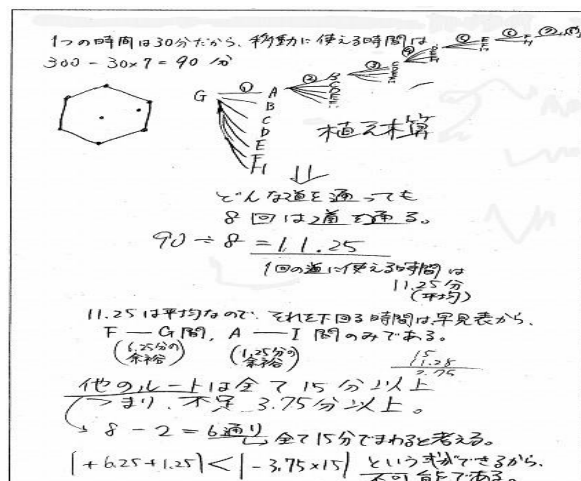 1つの時間は30分だから、移動に使える時間は
300 - 30×7 = 90 分
G ① A
B
C
D
E
F
H
植え木算
どんな道を通っても
8回は道を通る。
90 ÷ 8 = 11.25
1回の道に使える時間は
11.25分
(平均)
11.25は平均なので、それを下回る時間は、早見表から、
F — G間, A — I 間のみである。
(6.25分の余裕) (1.25分の余裕)
15
11.25
3.75
他のルートは全て15分以上
つまり、不足 3.75分以上。
→ 8 - 2 = 6通り
全て15分でまわると考える。
|+6.25+1.25| < |-3.75×15| という式ができるから、
不可能である。